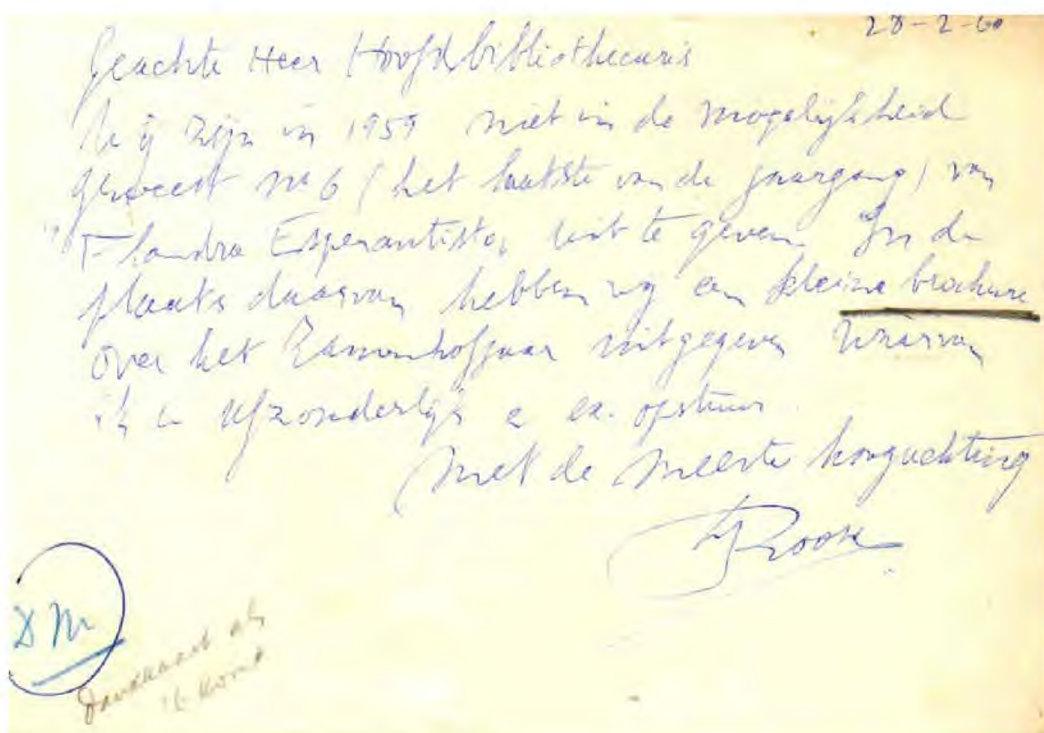 28-2-60
Geachte Heer Hoofdbibliothecaris
Wij zijn in 1959 niet in de mogelijkheid
geweest nr 6 (het laatste van de jaargang) van
"Flandra Esperantisto" uit te geven. In de
plaats daarvan hebben wij een kleine brochure
over het Zamenhofjaar uitgegeven waarvan
ik u afzonderlijk 2 ex. opstuur.
Met de meeste hoogachting
Roose
DM
Dankkaart als
komt